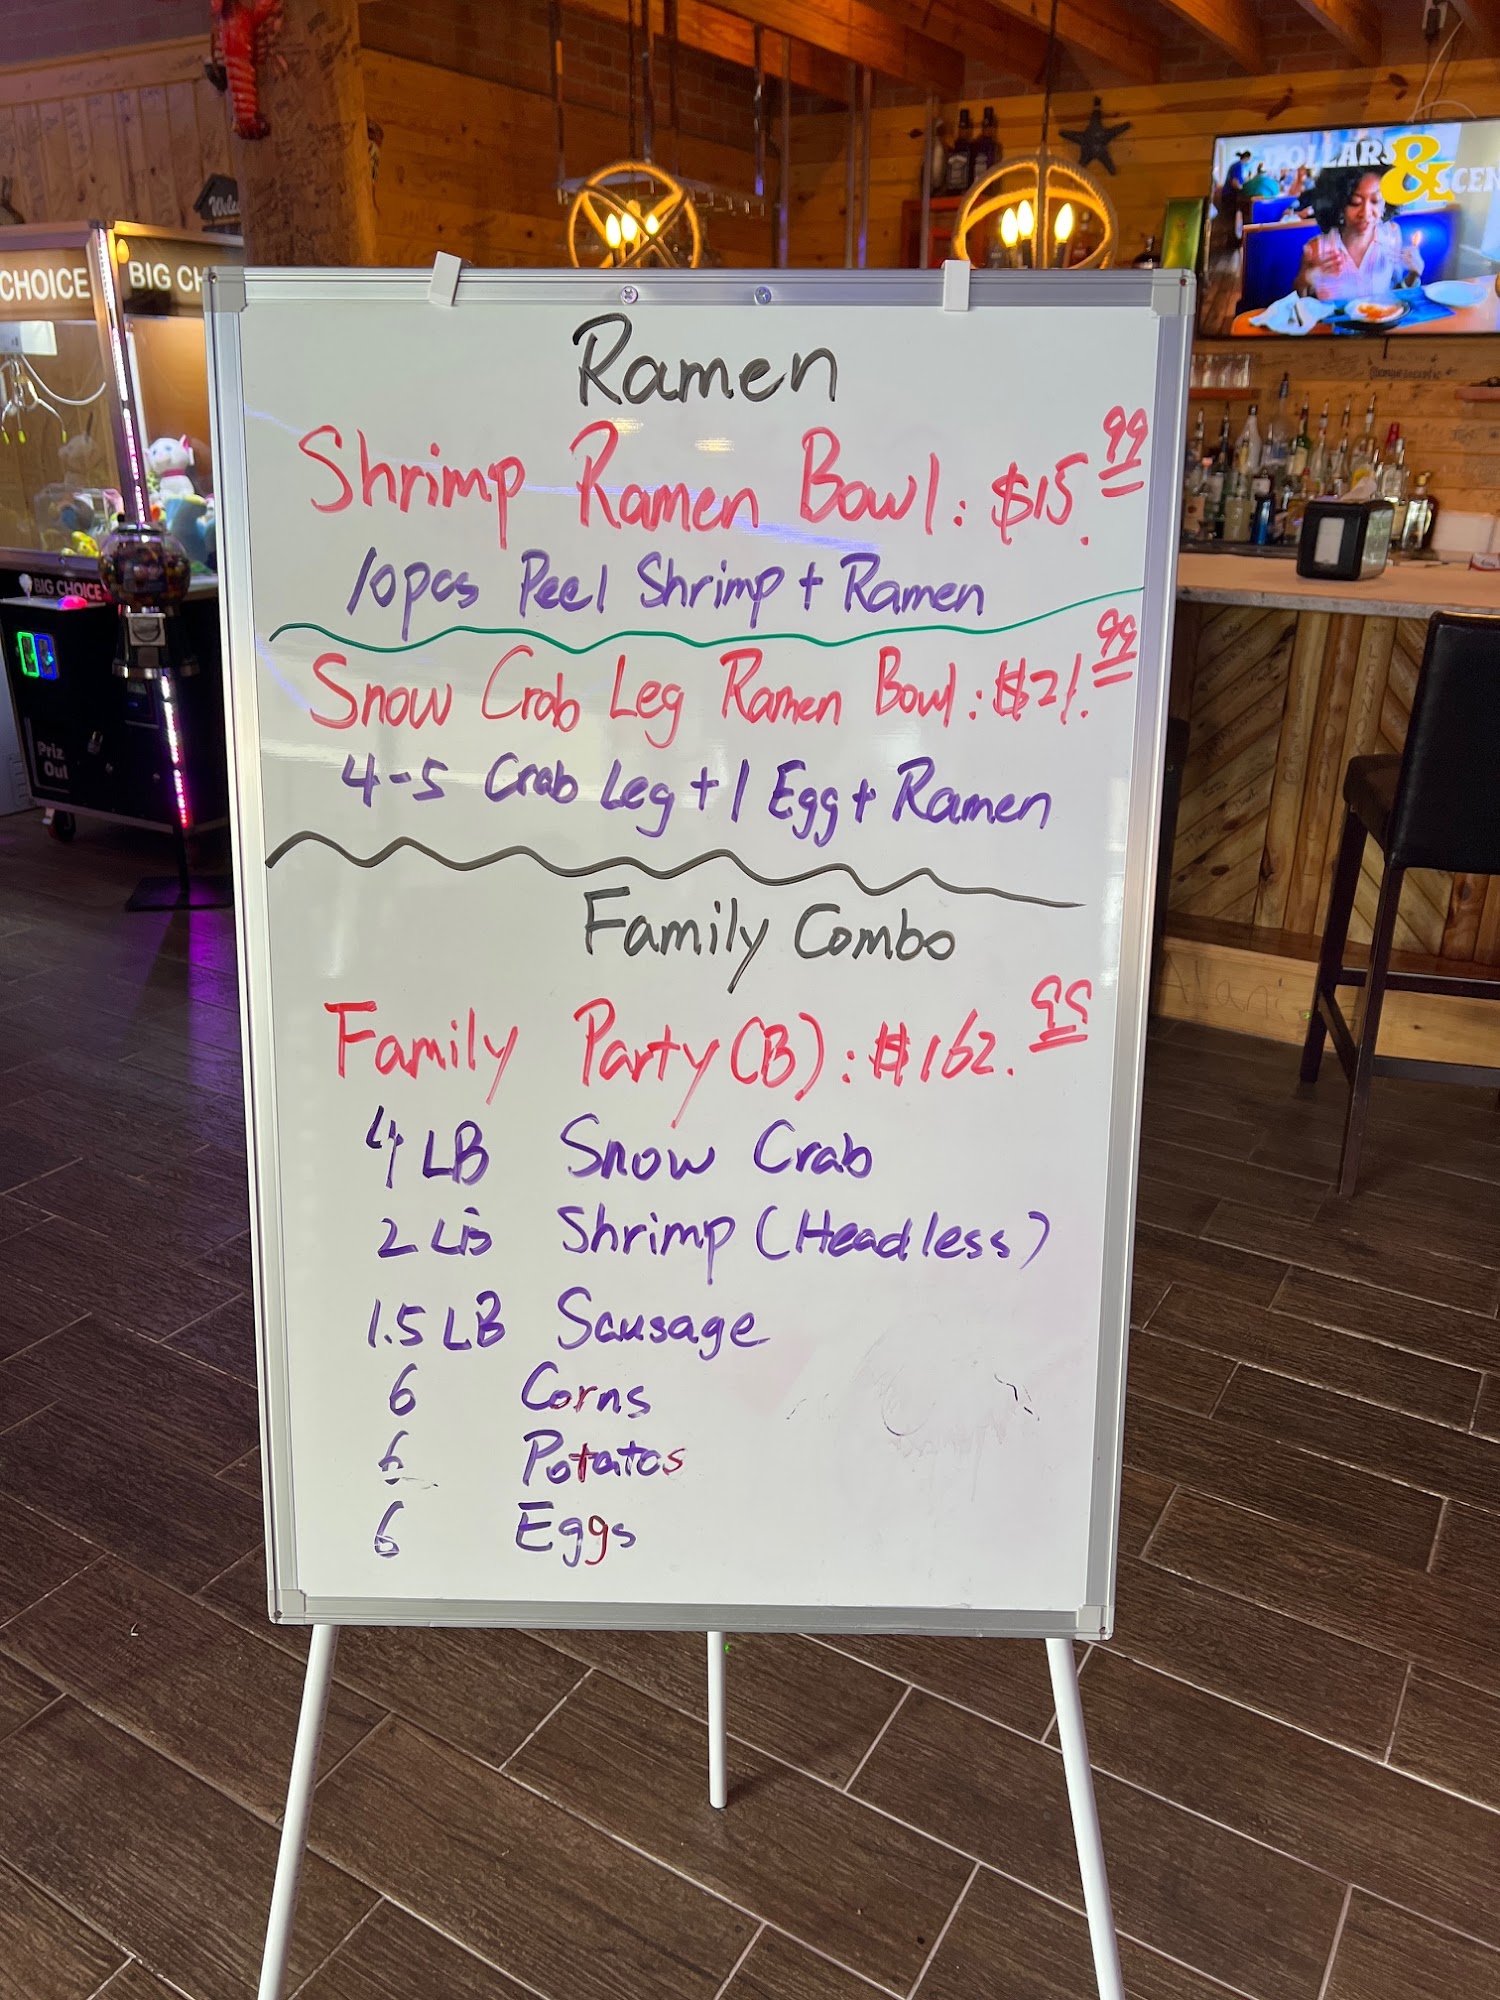 DOLLARS & SCEN
CHOICE
BIG CH
BIG CHOICE
Priz
Out
Ramen
Shrimp Ramen Bowl: $15.99
10pcs Peel Shrimp + Ramen
Snow Crab Leg Ramen Bowl: $21.99
4-5 Crab Leg + 1 Egg + Ramen
Family Combo
Family Party (B): $162.99
4 LB Snow Crab
2 LB Shrimp (Headless)
1.5 LB Sausage
6 Corns
6 Potatos
6 Eggs